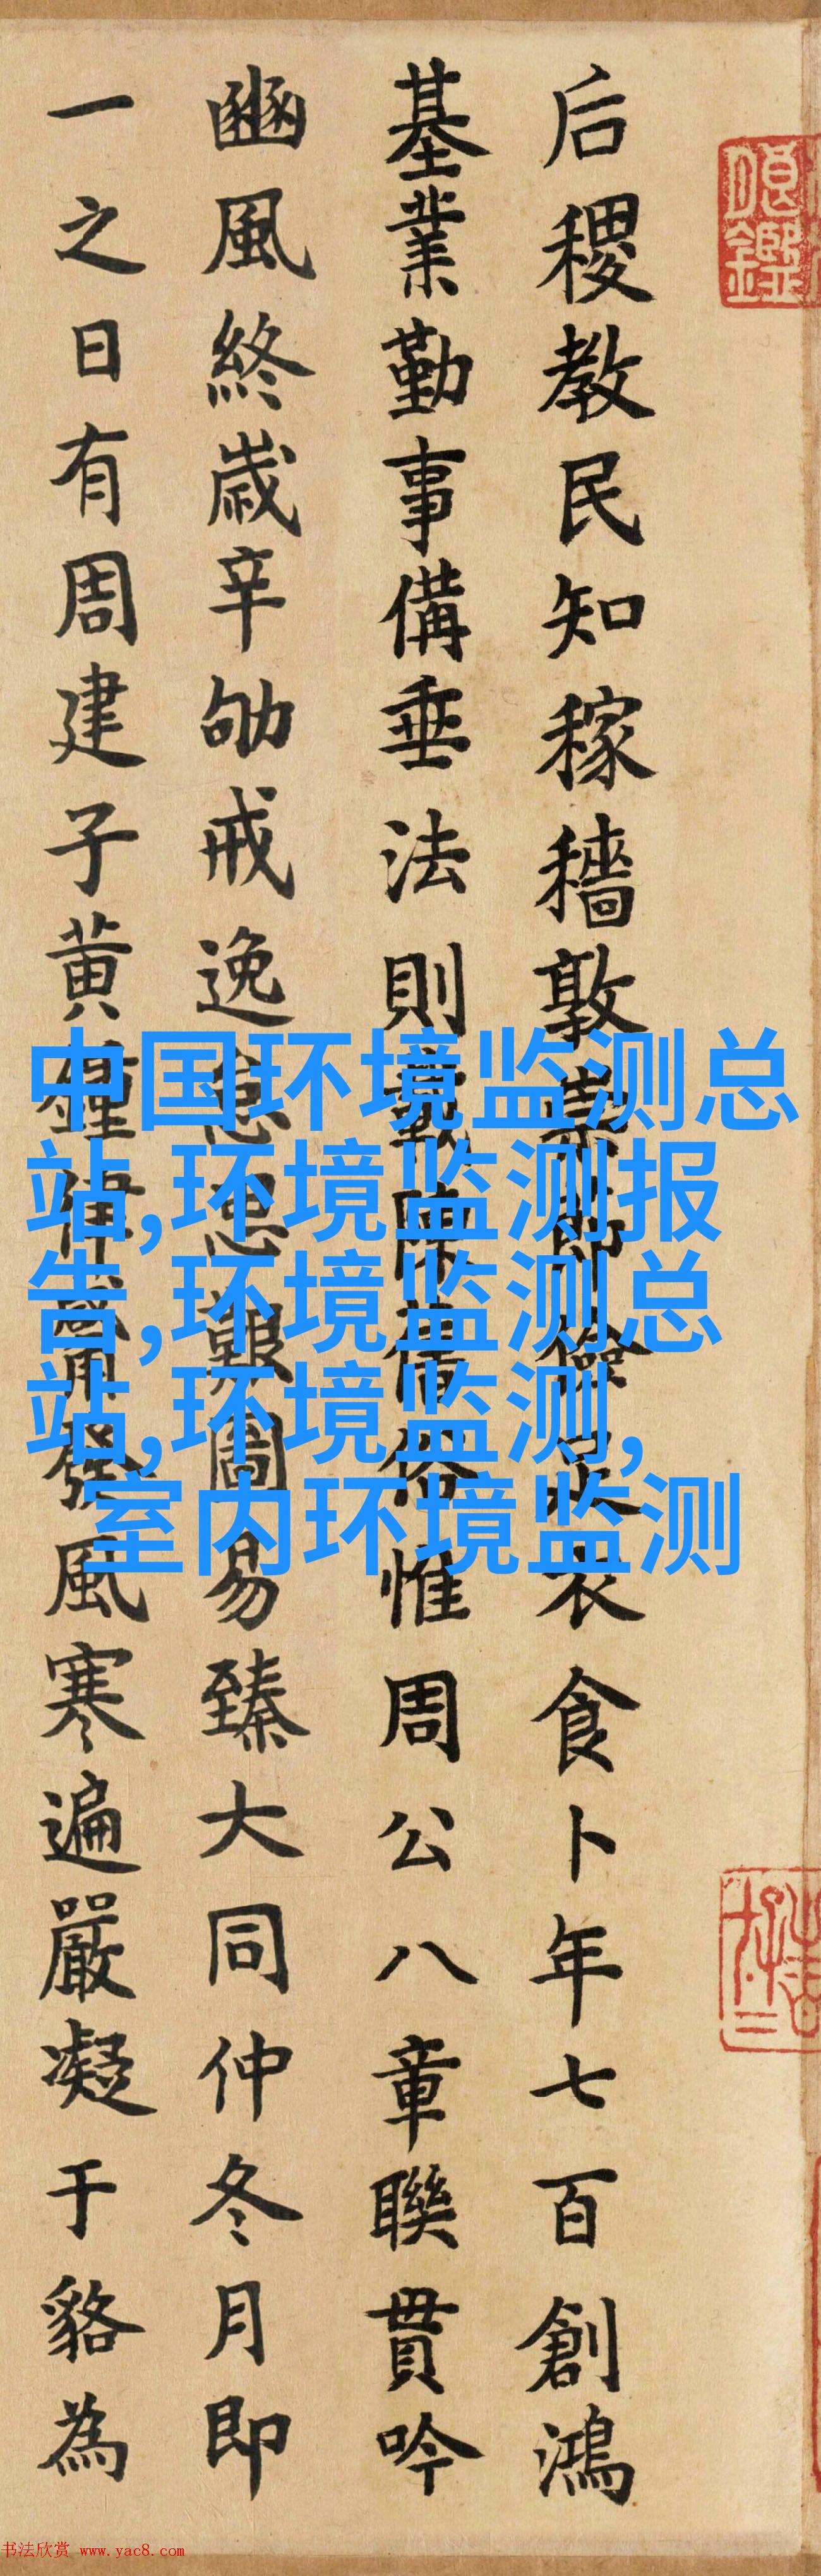 后稷教民知稼穡敦崇節儉足衣食卜年七百創鴻
基業勤事備垂法則陳舊俗惟周公八章聯貫吟
豳風終歲辛劬戒逸怠思艱圖易臻大同仲冬月即
一之日有周建子黃鍾律發風寒遍嚴凝于貉為
中国环境监测总
站,环境监测报
告,环境监测总
站,环境监测,
室内环境监测
书法欣赏 www.yac8.com